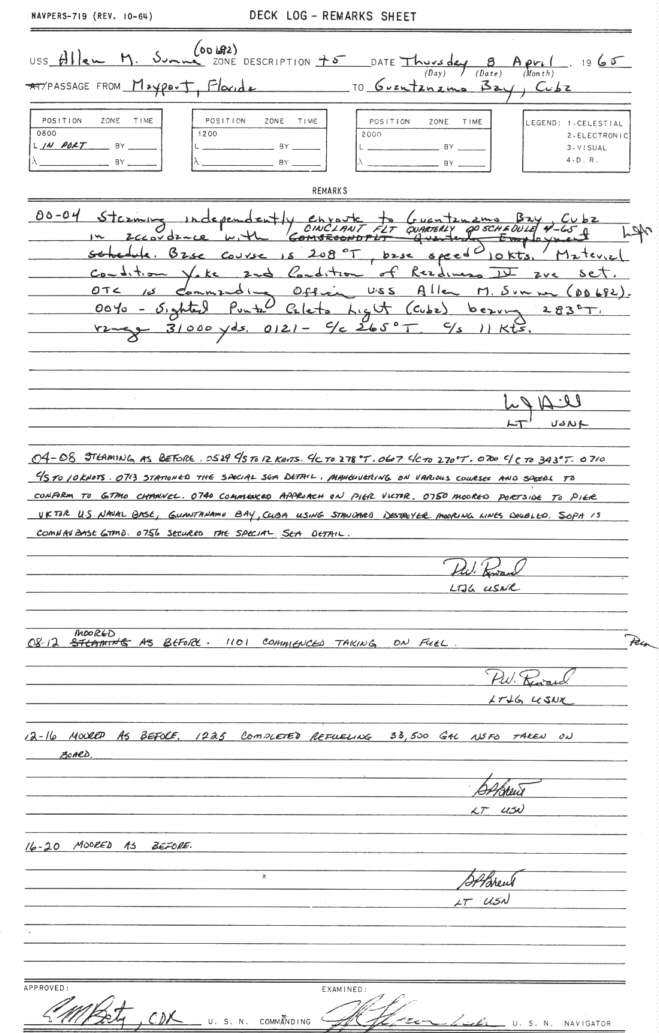 NAVPERS-719 (REV. 10-64) DECK LOG - REMARKS SHEET
(DD 692)
USS Allen M. Sumner ZONE DESCRIPTION +5 DATE Thursday 8 April , 19 65
(Day) (Date) (Month)
AT/PASSAGE FROM Mayport, Florida TO Guantanamo Bay, Cuba
POSITION ZONE TIME POSITION ZONE TIME POSITION ZONE TIME LEGEND: 1-CELESTIAL
0800 1200 2000 2-ELECTRONIC
L IN PORT BY L BY L BY 3-VISUAL
λ BY λ BY λ BY 4-D. R.
REMARKS
00-04 Steaming independently enroute to Guantanamo Bay Cuba
CINCLANT FLT QUARTERLY OP SCHEDULE 4-65
in accordance with COMSECONDFLT Quarterly Employment
schedule. Base course is 208°T, base speed 10 kts. Material
Condition Yoke and Condition of Readiness IV are set.
OTC is Commanding Officer USS Allen M. Sumner (DD 692).
0040 - Sighted Punta Caleta Light (Cuba) bearing 283°T.
range 31000 yds. 0121 - C/c 265°T. C/s 11 kts.
WJ Hill
LT USNR
04-08 STEAMING AS BEFORE. 0529 C/S TO 12 KNOTS. C/C TO 278°T. 0607 C/C TO 270°T. 0700 C/C TO 343°T. 0710
C/S TO 10 KNOTS. 0713 STATIONED THE SPECIAL SEA DETAIL. MANEUVERING ON VARIOUS COURSES AND SPEEDS TO
CONFORM TO GTMO CHANNEL. 0740 COMMENCED APPROACH ON PIER VICTOR. 0750 MOORED PORTSIDE TO PIER
VICTOR U.S. NAVAL BASE, GUANTANAMO BAY, CUBA USING STANDARD DESTROYER MOORING LINES DOUBLED. SOPA IS
COMNAVBASE GTMO. 0756 SECURED THE SPECIAL SEA DETAIL.
LTJG USNR
MOORED
08-12 STEAMING AS BEFORE. 1101 COMMENCED TAKING ON FUEL.
LTJG USNR
12-16 MOORED AS BEFORE. 1225 COMPLETED REFUELING 33,500 GAL NSFO TAKEN ON
BOARD.
LT USN
16-20 MOORED AS BEFORE.
LT USN
APPROVED: EXAMINED:
CDR U. S. N. COMMANDING U. S. N. NAVIGATOR